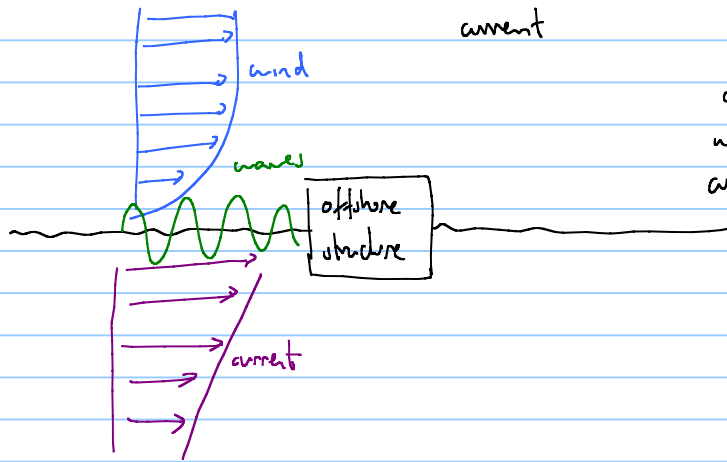 current
wind
waves
offshore
structure
current